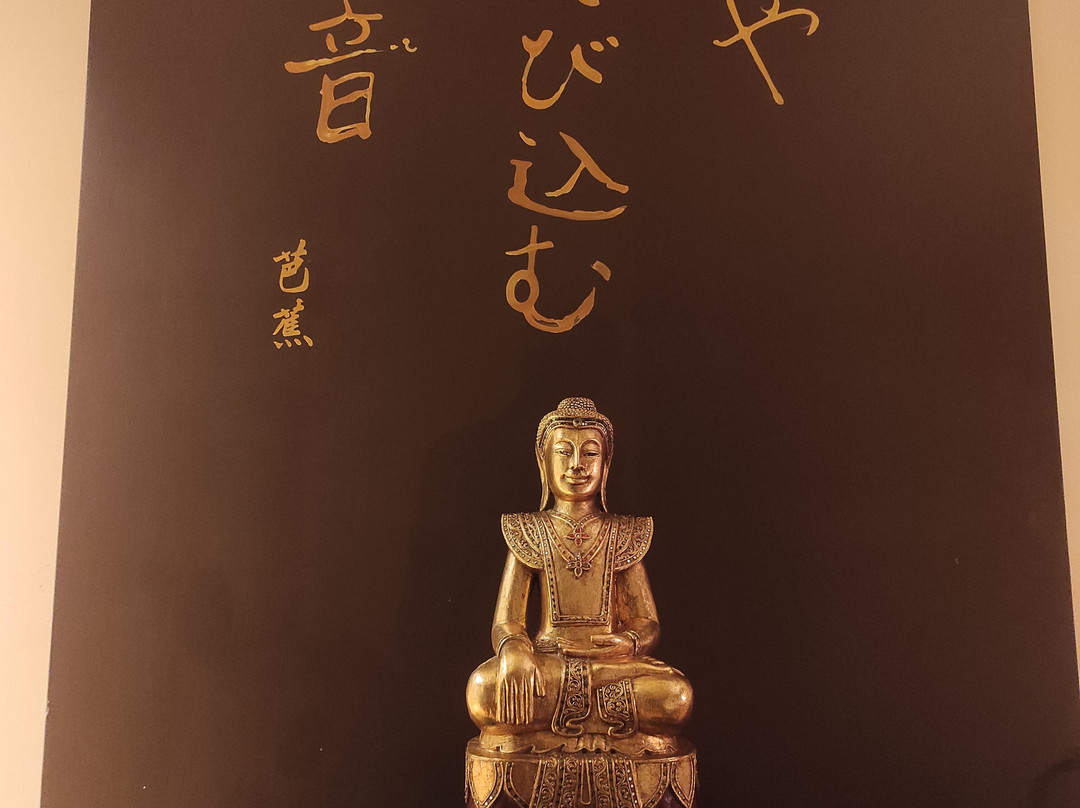 や
び込む
音
芭蕉